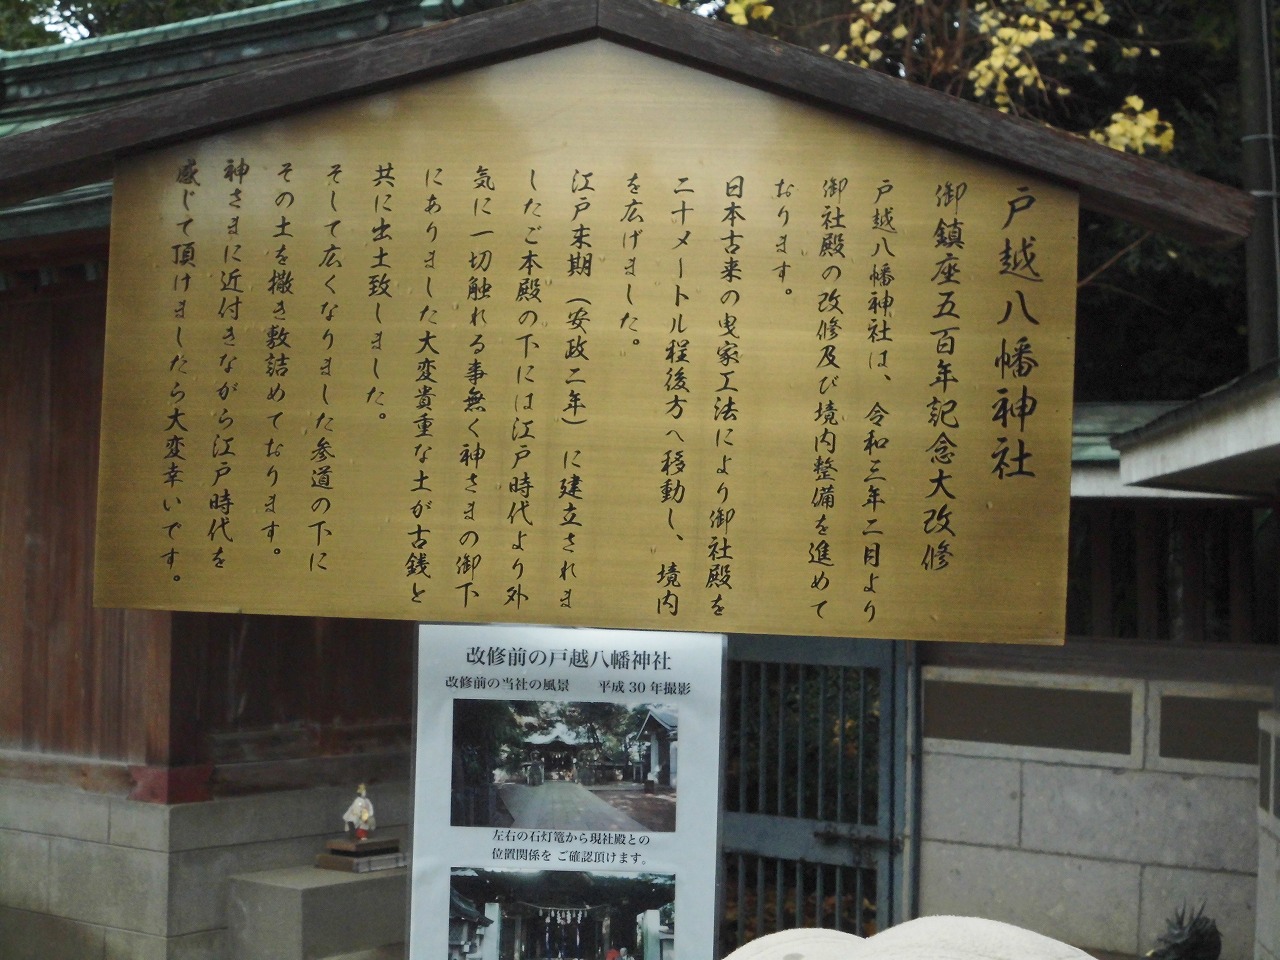 戸越八幡神社
御鎮座五百年記念大改修
戸越八幡神社は、令和三年二月より
御社殿の改修及び境内整備を進めて
おります。
日本古来の曳家工法により御社殿を
二十メートル程後方へ移動し、境内
を広げました。
江戸末期（安政二年）に建立されま
したご本殿の下には江戸時代より外
気に一切触れる事無く神さまの御下
にありました大変貴重な土が古銭と
共に出土致しました。
そして広くなりました参道の下に
その土を撒き敷詰めております。
神さまに近付きながら江戸時代を
感じて頂けましたら大変幸いです。
改修前の戸越八幡神社
改修前の当社の風景　平成30年撮影
左右の石灯篭から現社殿との
位置関係を ご確認頂けます。